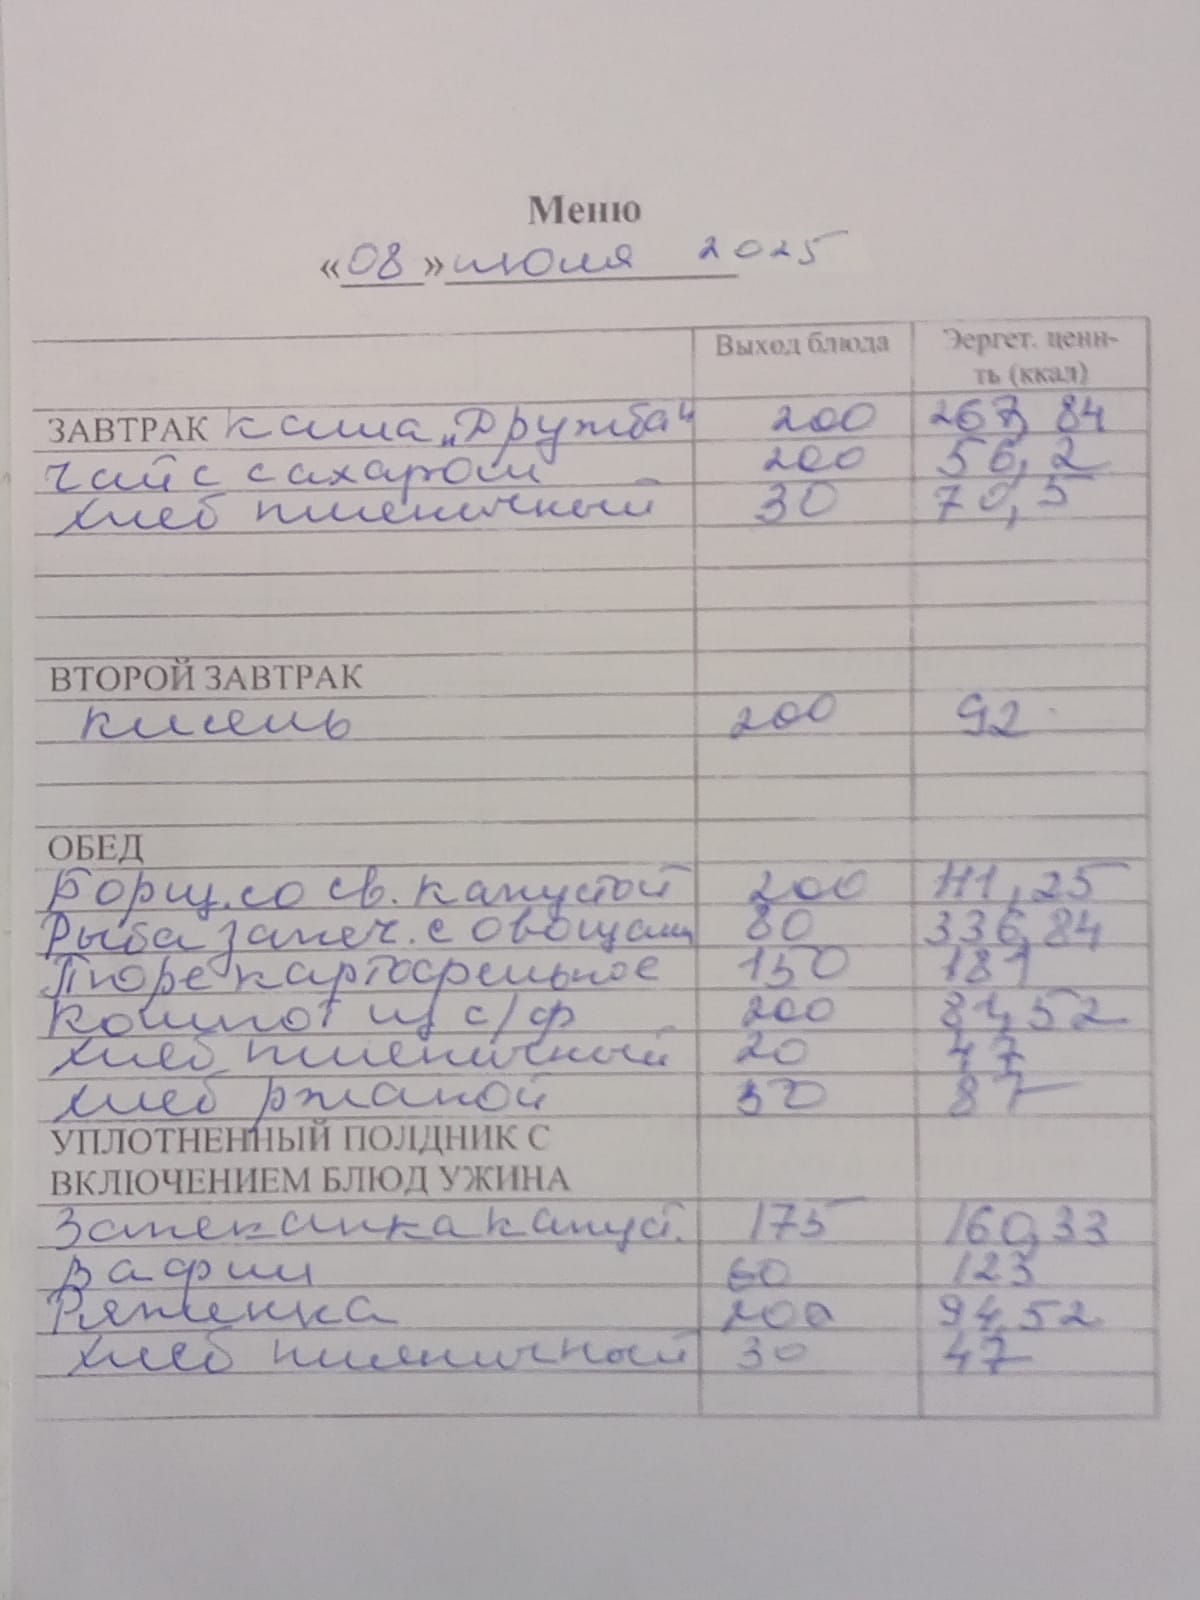 Меню
«08» июля 2025
Выход блюда Эергет. ценн-
ть (ккал)
ЗАВТРАК каша „Дружба" 200 267,84
чай с сахаром 200 56,2
хлеб пшеничный 30 70,5
ВТОРОЙ ЗАВТРАК
кисель 200 92
ОБЕД
Борщ со св. капустой 200 111,25
Рыба запеч. с овощами 80 336,84
Пюре картофельное 150 181
Компот из с/ф 200 81,52
хлеб пшеничный 20 47
хлеб ржаной 50 87
УПЛОТНЕННЫЙ ПОЛДНИК С
ВКЛЮЧЕНИЕМ БЛЮД УЖИНА
Запеканка капуст. 175 160,33
Вафли 60 123
Ряженка 200 94,52
хлеб пшяничный 30 47